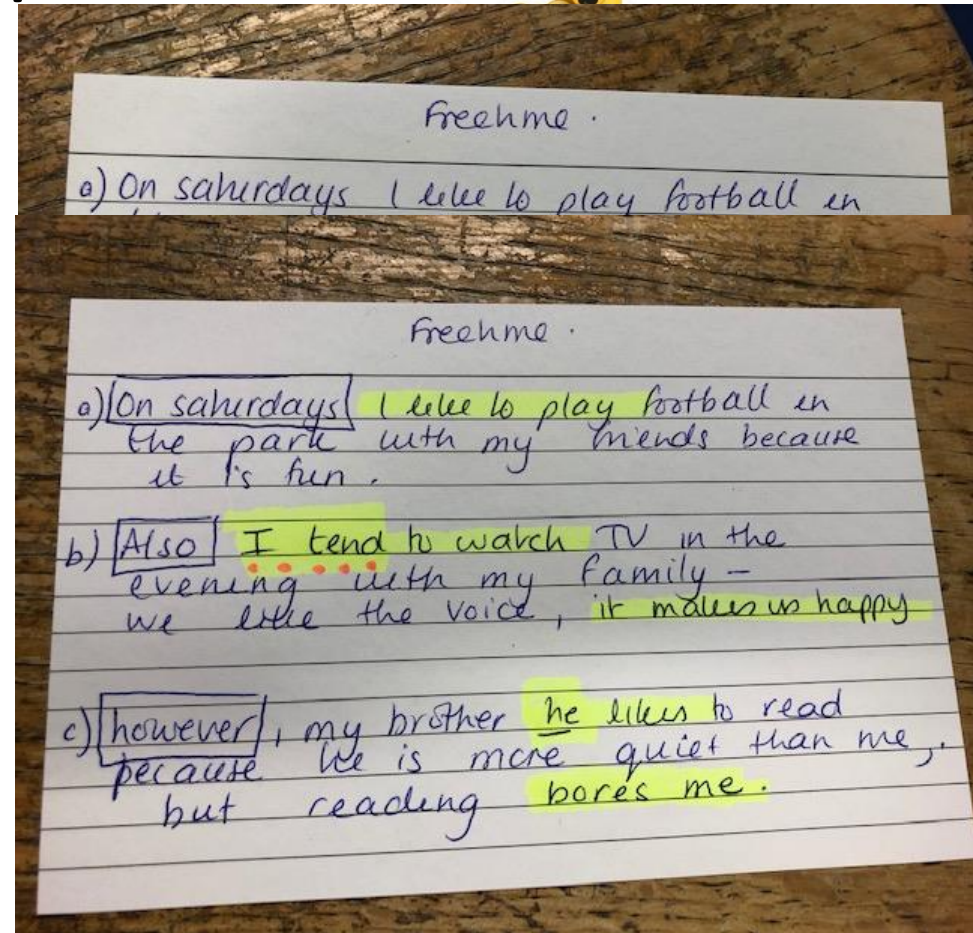 Freetime.
a) On saturdays I like to play football in
Freetime.
a) On saturdays I like to play football in
the park with my friends because
it is fun.
b) Also I tend to watch TV in the
evening with my family –
we like the voice, it makes us happy
c) however, my brother he likes to read
because he is more quiet than me,
but reading bores me.